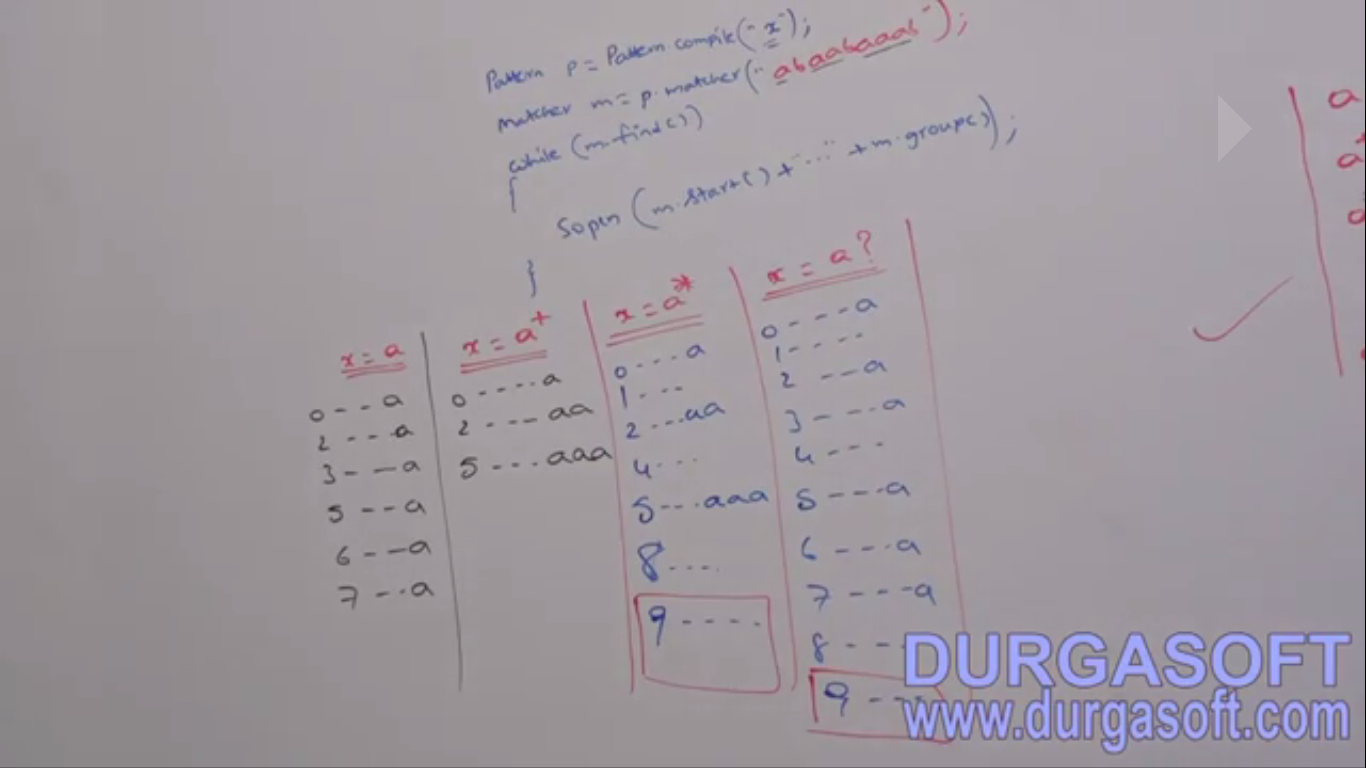 Pattern p = Pattern compile("x");
Matcher m = p.matcher("abaabaaab");
while (m.find())
{
Sopln (m.start() + "..." + m.group());
}
x = a
0 - - - a
2 - - - a
3 - - - a
5 - - a
6 - - a
7 - - a
x = a+
0 - - - - a
2 - - - aa
5 - - - aaa
x = a*
0 - - - a
1 - - -
2 - - - aa
4 - - -
5 - - - aaa
8 - - - -
9 - - - -
x = a?
0 - - - a
1 - - - -
2 - - a
3 - - - a
4 - - -
5 - - - a
6 - - - a
7 - - - a
8 - - -
9 - - - -
a
a+
a
DURGASOFT
www.durgasoft.com